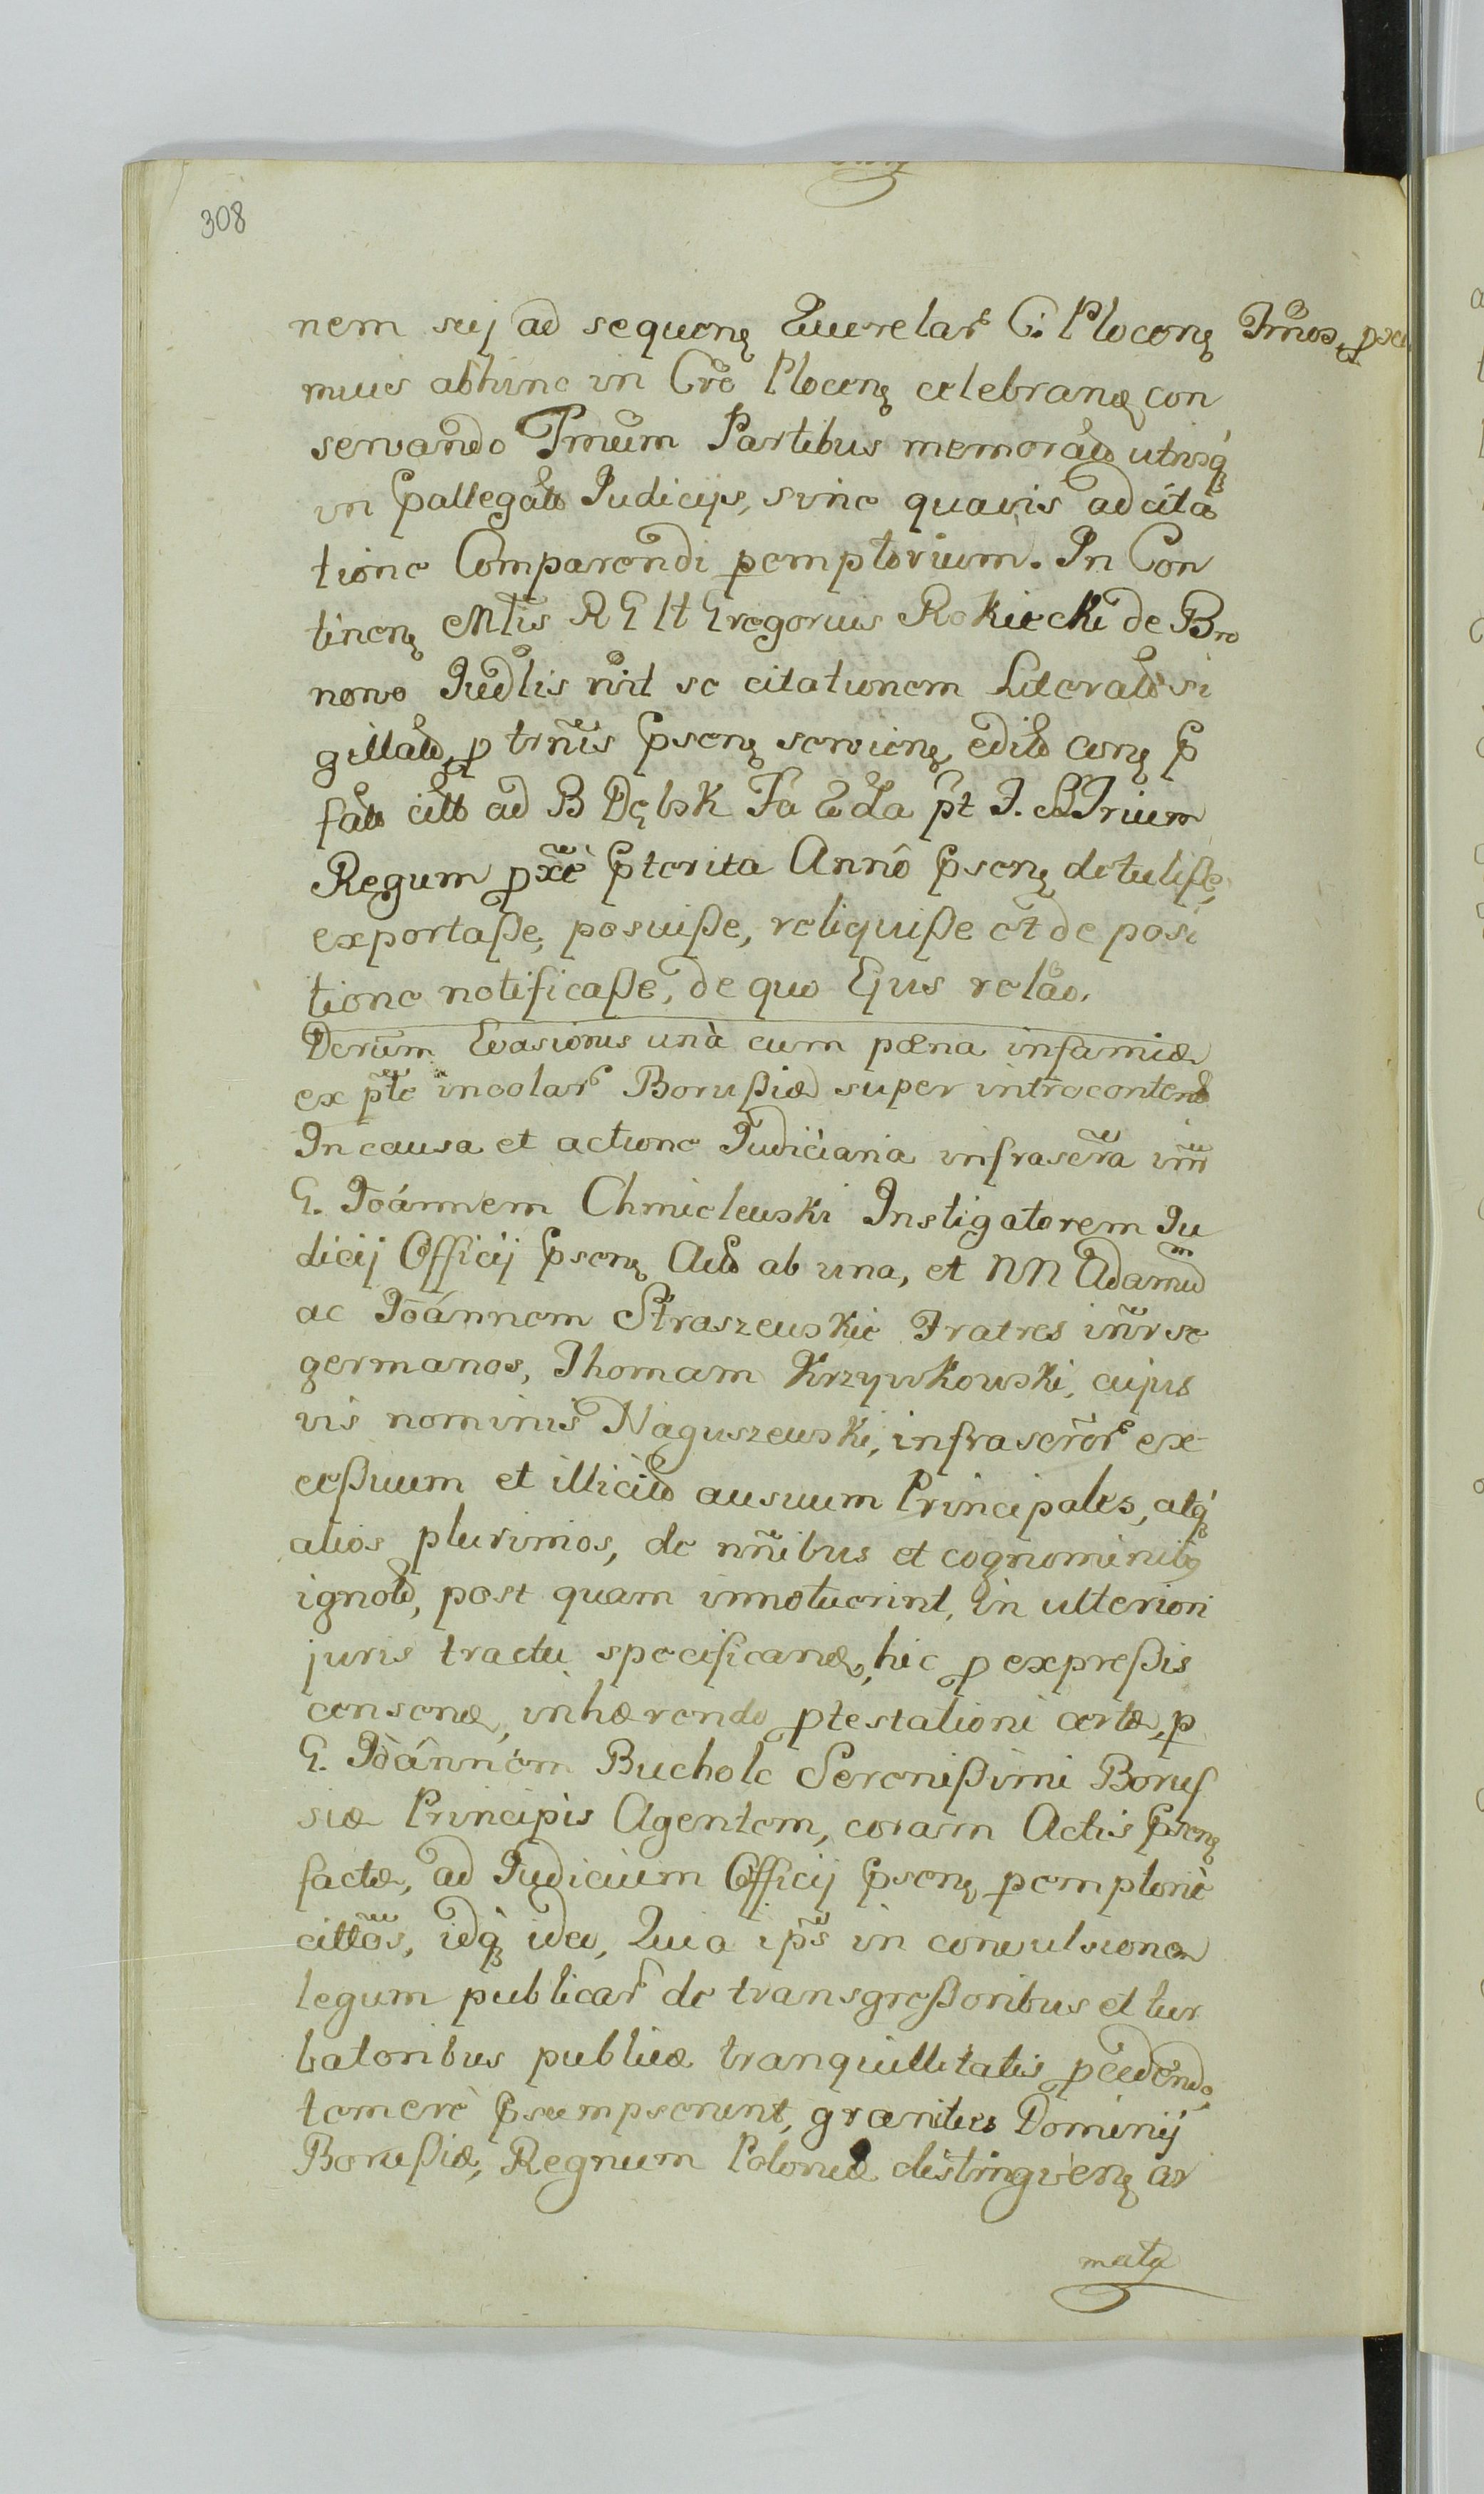 308
nem sui ad sequenę Querelar̃ C. Plocenę Tr̃mos, pxi
mius abhinc in Cr̃o Plocenę celebranđ con
servando Tr̃mum Partibus memorađ utrisq́
in p̃allegať Judicijs, sine quavis adcita
tione Comparendi p̱emptorium. In Con
tinenę Mt̃is R G H Gregorius Rokicki de Bro
nowo Jud̃lis rĩt se citationem Literať si
gillať, p̱ trñis p̃senę servienę, ediť cenę p̃
fať citť ad B Dębsk Fa Eđa pt̃ F. SS Trium
Regum p̱xẽ p̃terita Annô p̃senę detuliße,
exportaße, posuiße, reliquiße et de posi
tione notificaße, de quo Ejus relaõ.
Decr̃um Evasionis unà cum pœna infamiæ
ex pt̃e incolar̃ Borußiæ super introcontenť
In causa et actione Judiciaria infrascr̃a int̃r
G. Joánnem Chmielewski Instigatorem Ju
dicij Officij p̃senę Act̃o ab una, et NN Adamum
ac Joánnem Straszewskie Fratres int̃r se
germanos, Thomam Krzywkowski, cujus
vis nominis Naguszewski, infrascr̃or̃ ex
ceßuum et illiciť ausuum Principales, atq́
alios plurimos, de nñibus et cognominibꝯ
ignoť, post quam innotuerint, in ulteriori
juris tractu specificanđ, hic p̱ expreßis
censenđ, inhærendo p̱testationi certæ, p̱
G. Joánnem Bucholc Serenißimi Borus
siæ Principis Agentem, coram Actis p̃senę
factæ, ad Judicium Officij p̃senę p̱emptoriè
citt̃os, idq́ ideo, Quia ip̃s in convulsionem
legum publicar̃ de transgreßoribus et tur
batoribus publicæ tranquillitatis p̱cedendo,
temerè p̃sumpserunt, granities Dominij
Borußiæ, Regnum Poloniæ distingvenę ar
mata